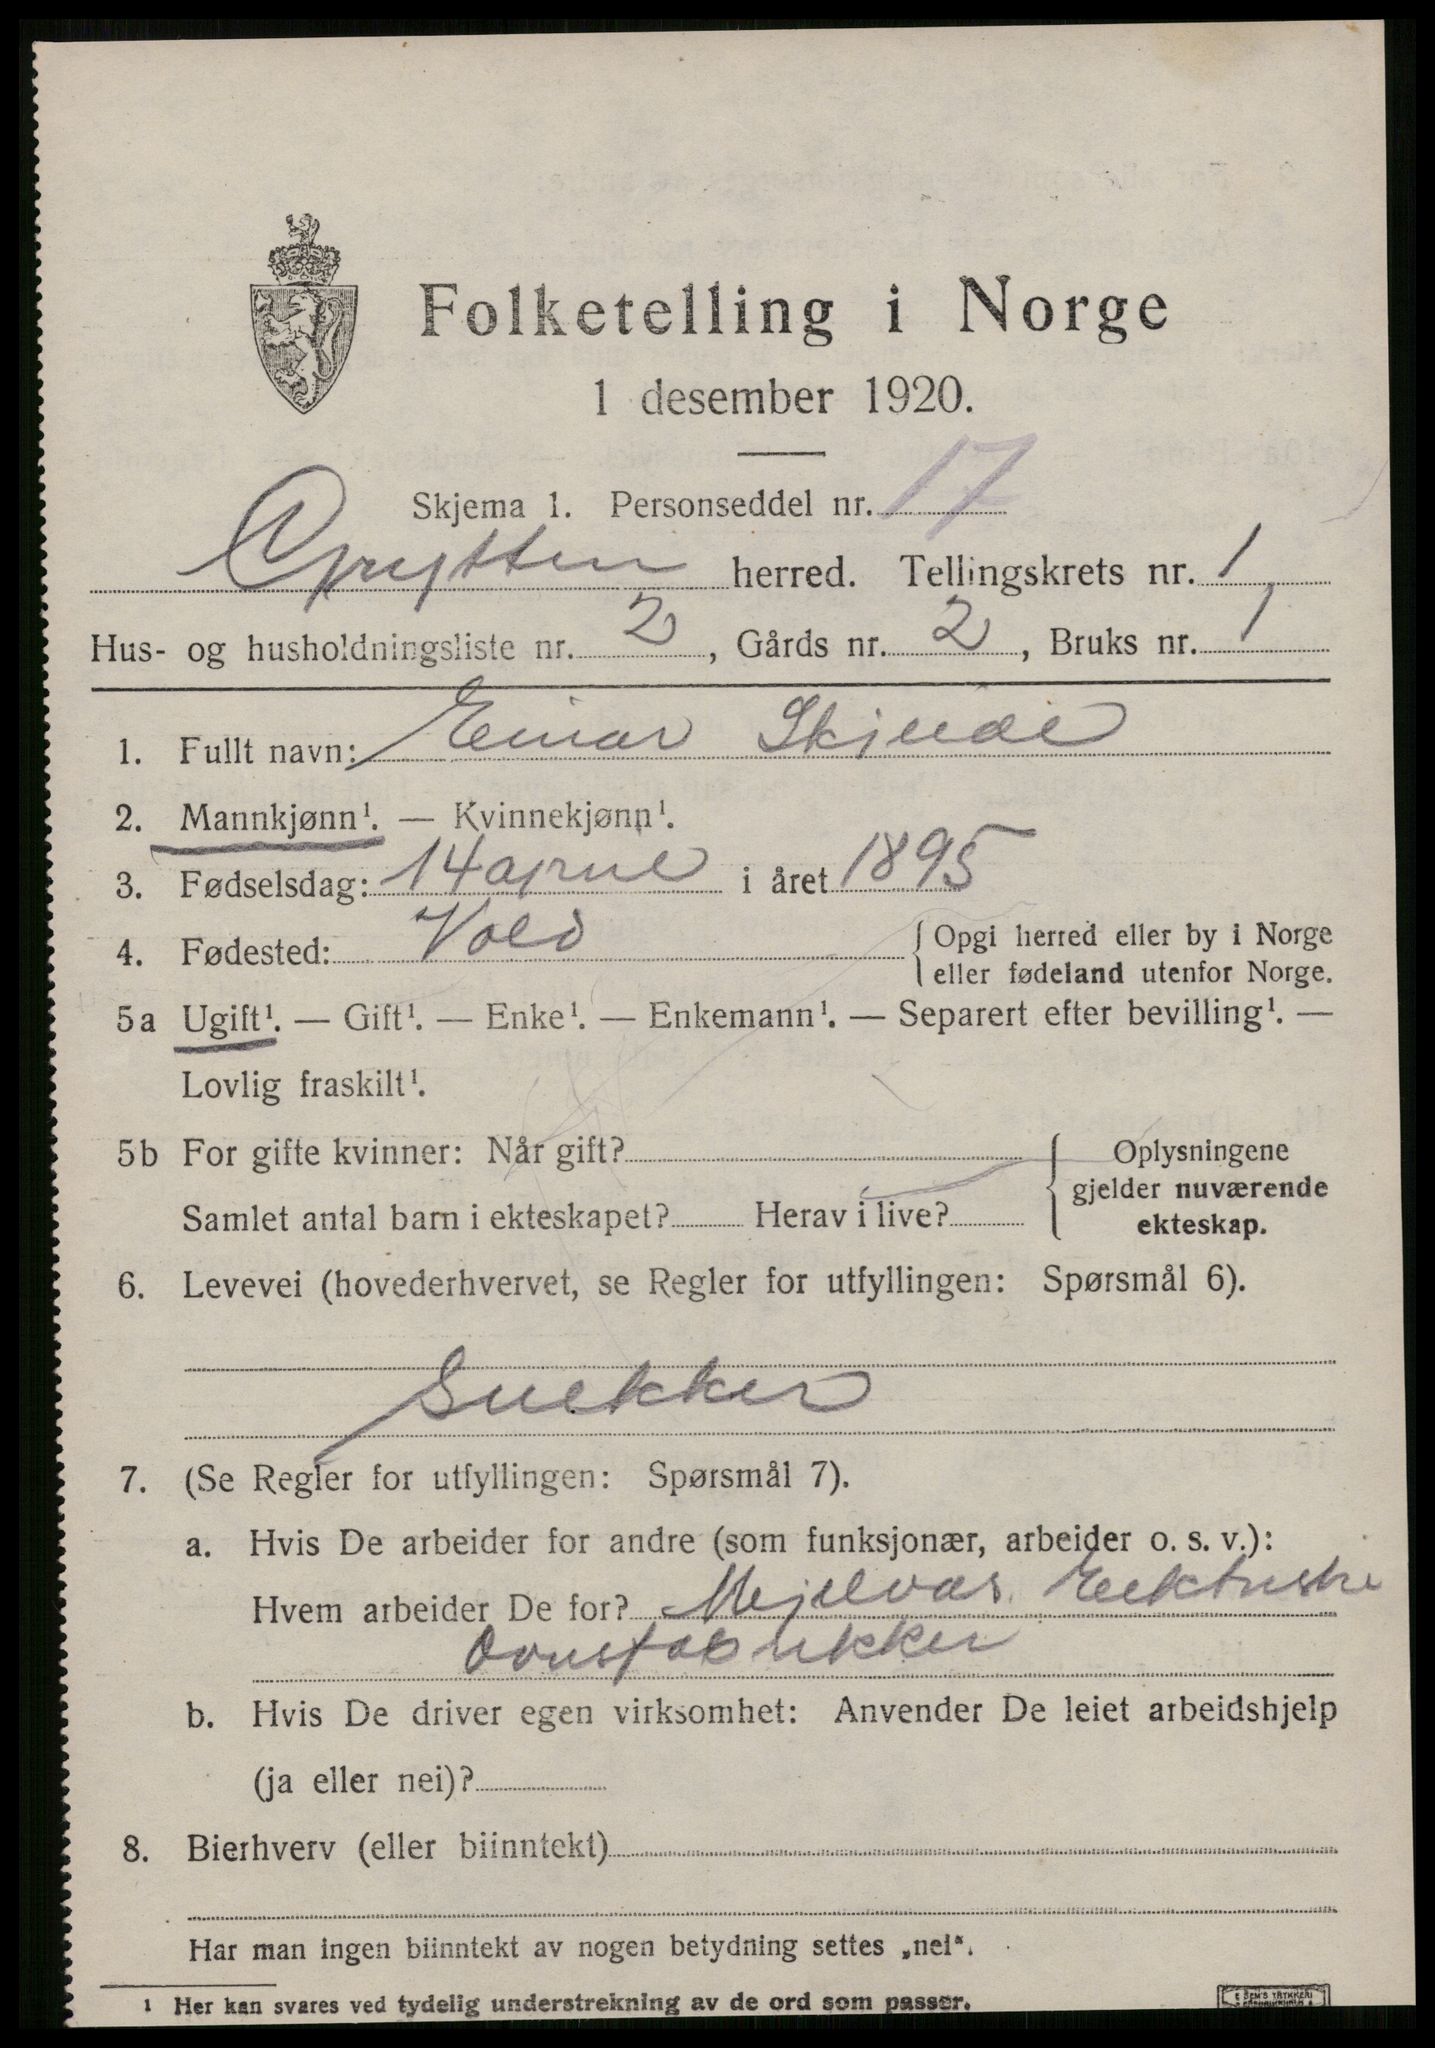 Folketelling i Norge
1 desember 1920.
Skjema 1. Personseddel nr. 17
Grytten herred. Tellingskrets nr. 1
Hus- og husholdningsliste nr. 2, Gårds nr. 2, Bruks nr. 1
1. Fullt navn: Einar Skjelde
2. Mannkjønn¹. — Kvinnekjønn¹.
3. Fødselsdag: 14 april i året 1895
4. Fødested: Vold { Opgi herred eller by i Norge
eller fødeland utenfor Norge.
5a Ugift¹. — Gift¹. — Enke¹. — Enkemann¹. — Separert efter bevilling¹. —
Lovlig fraskilt¹.
5b For gifte kvinner: Når gift? { Oplysningene
gjelder nuværende
Samlet antal barn i ekteskapet? Herav i live? ekteskap.
6. Levevei (hovederhvervet, se Regler for utfyllingen: Spørsmål 6).
Snekker
7. (Se Regler for utfyllingen: Spørsmål 7).
a. Hvis De arbeider for andre (som funksjonær, arbeider o. s. v.):
Hvem arbeider De for? Mjelvas Elektriske
Ovnsfabrikker
b. Hvis De driver egen virksomhet: Anvender De leiet arbeidshjelp
(ja eller nei)?
8. Bierhverv (eller biinntekt)
Har man ingen biinntekt av nogen betydning settes „nei“.
1 Her kan svares ved tydelig understrekning av de ord som passer.